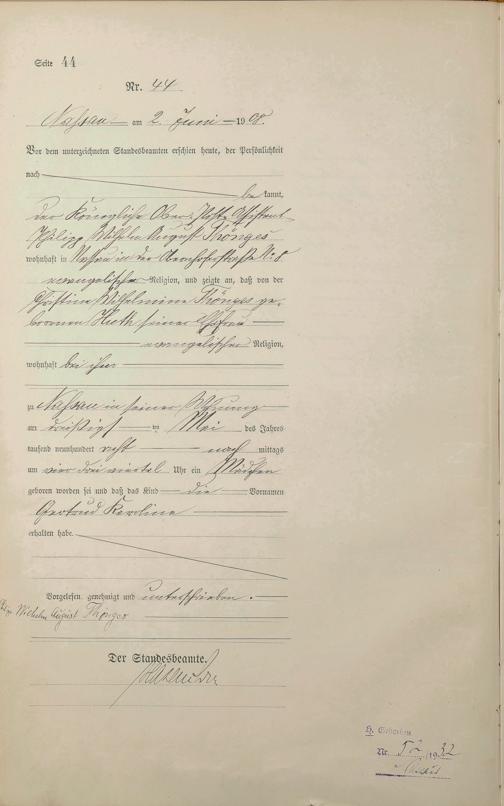 Seite 44
Nr. 44
Nassau am 2 Juni 1908.
Vor dem unterzeichneten Standesbeamten erschien heute, der Persönlichkeit
nach
be kannt,
der Königliche Ober-Post-Assistent
Philipp Wilhelm August Thönges
wohnhaft in Nassau in der Oberhoferstraße No 8
evangelischer Religion, und zeigte an, daß von der
Christine Wilhelmine Thönges ge-
borenen Huth seiner Ehefrau
evangelischer Religion,
wohnhaft bei ihm
zu Nassau in seiner Wohnung
am dreißigst en Mai des Jahres
tausend neunhundert acht nach mittags
um vier drei viertel Uhr ein Mädchen
geboren worden sei und daß das Kind die Vornamen
Gertrud Karoline
erhalten habe.
Vorgelesen, genehmigt und unterschrieben.
Wilhelm August Thönges
Der Standesbeamte.
H. Geborken
Nr. 52 /19 32